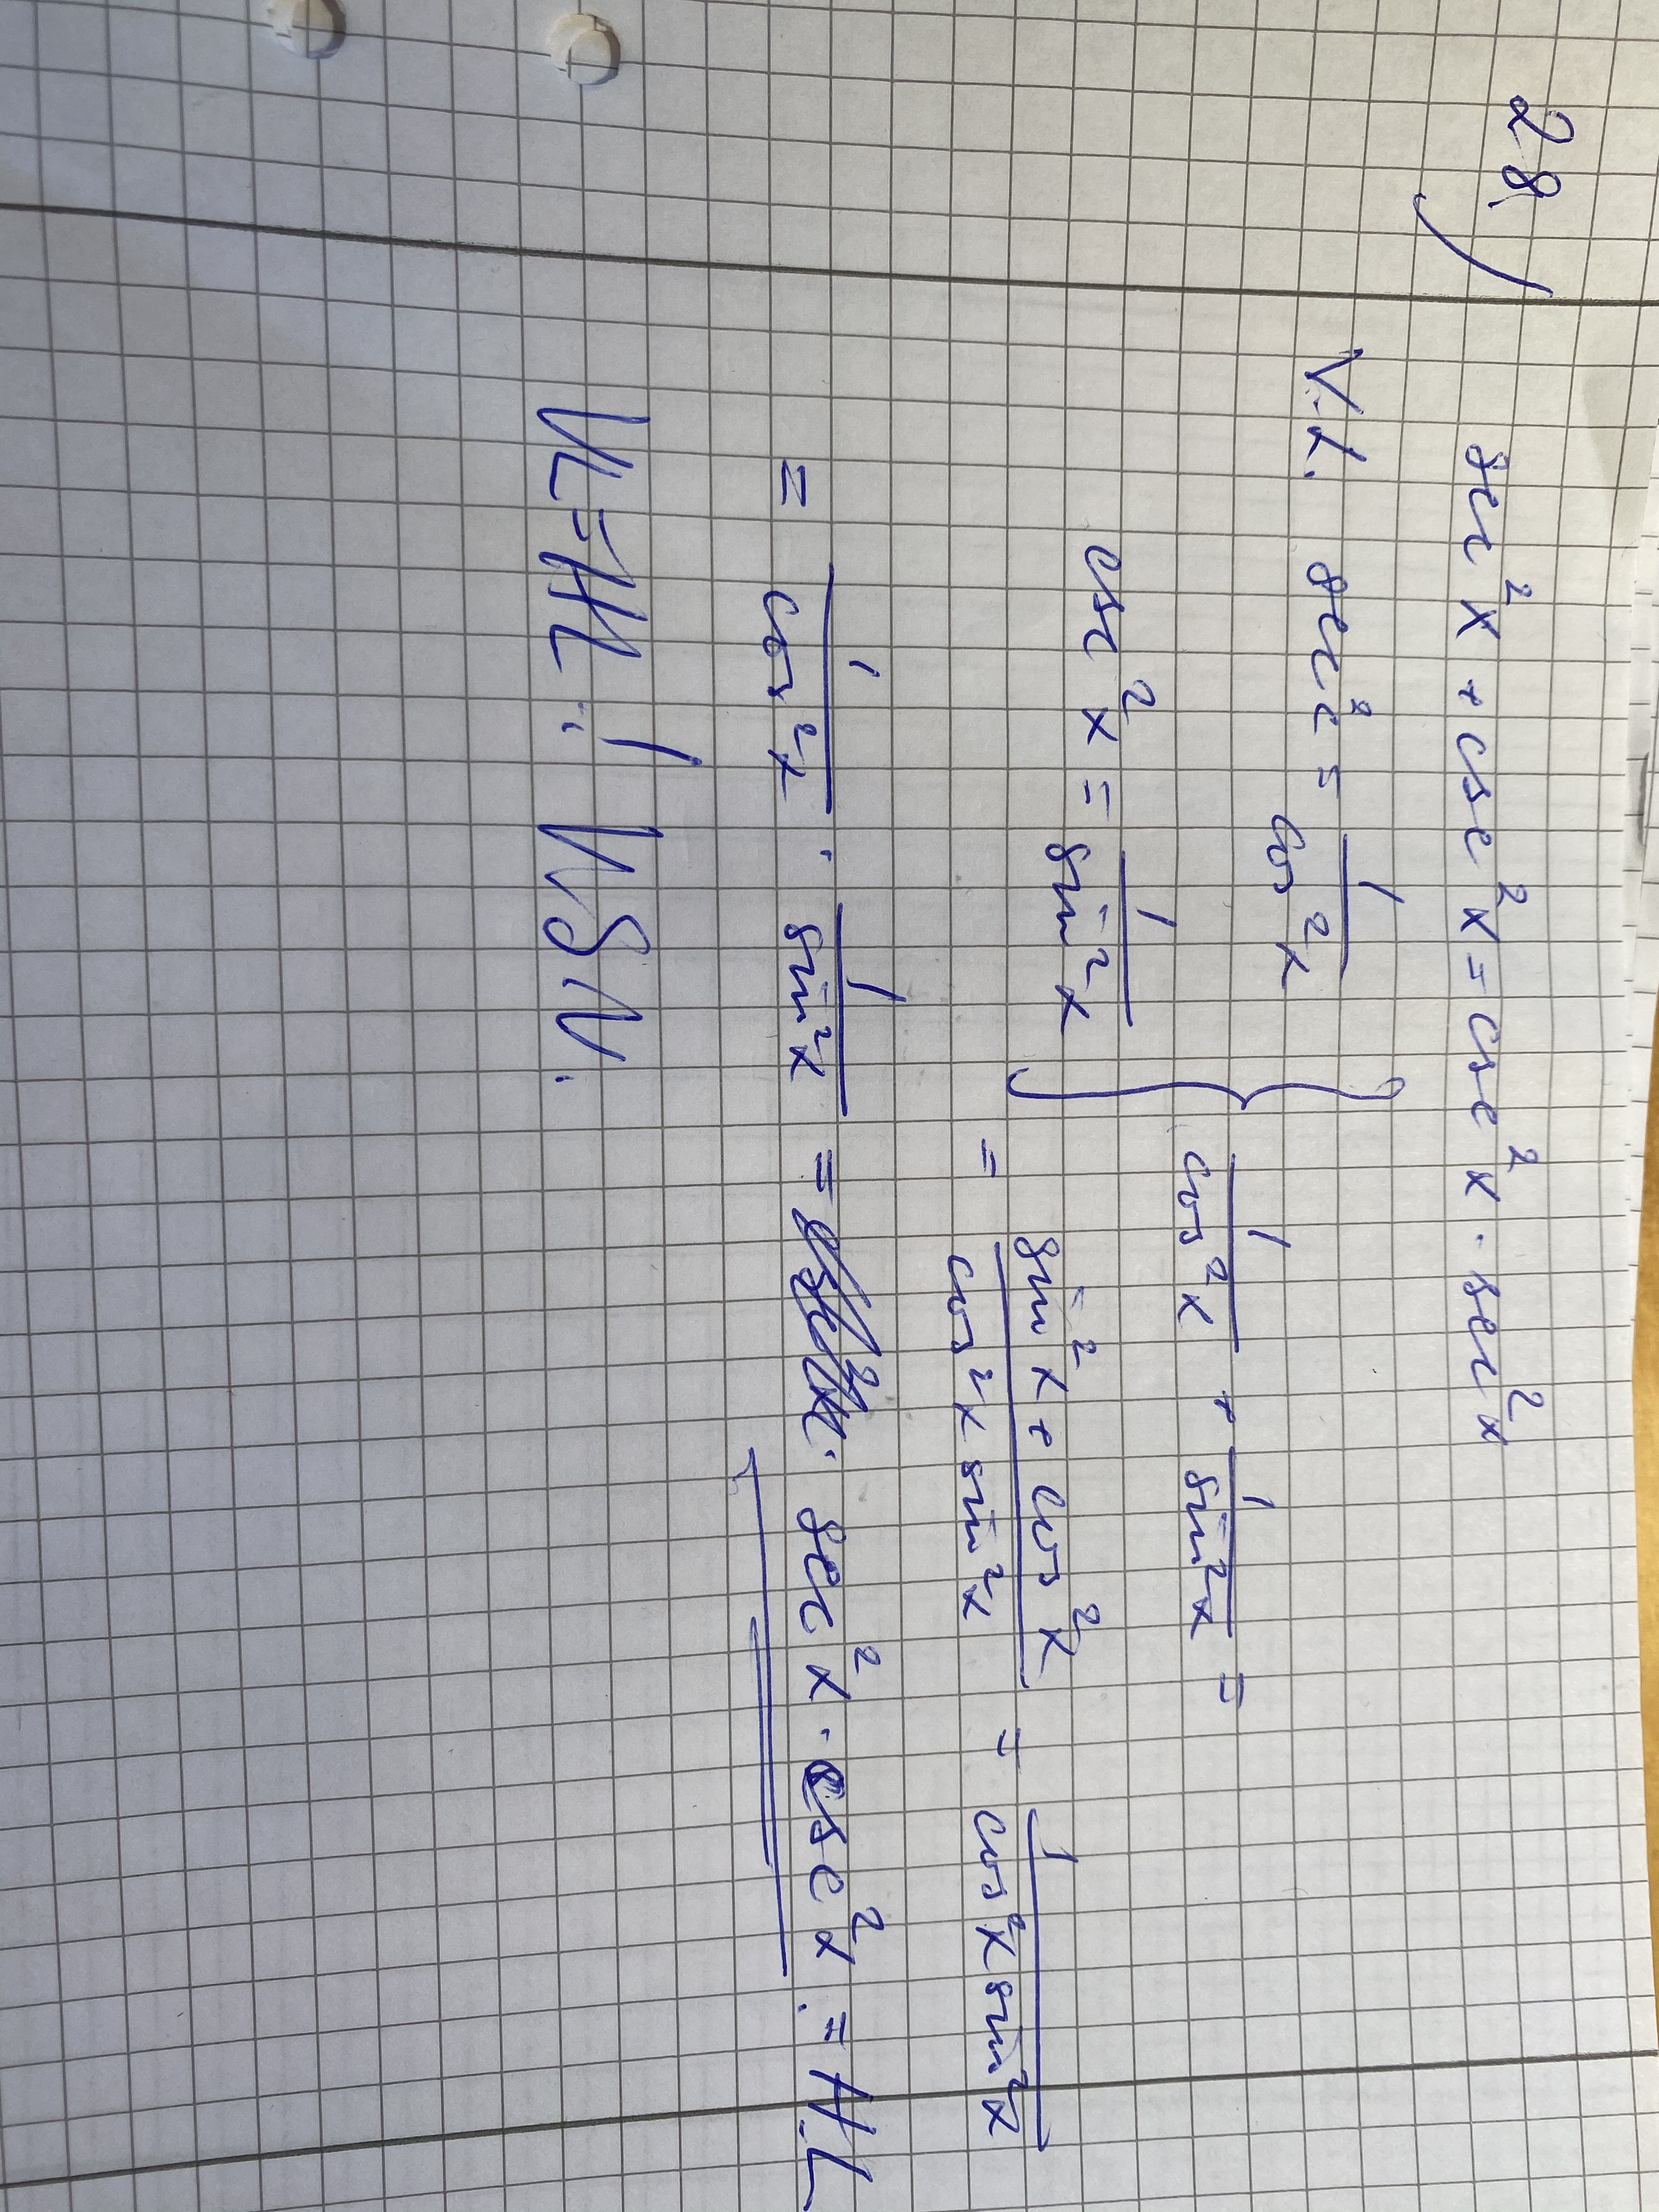 28) sec²x + csc²x = csc²x · sec²x
V.L. sec² = 1/cos²x
1/cos²x + 1/sin²x =
csc²x = 1/sin²x
= (sin²x + cos²x)/(cos²x sin²x) = 1/(cos²x sin²x)
= 1/cos²x · 1/sin²x = sec²x · csc²x = H.L
VL = HL ! VSV.